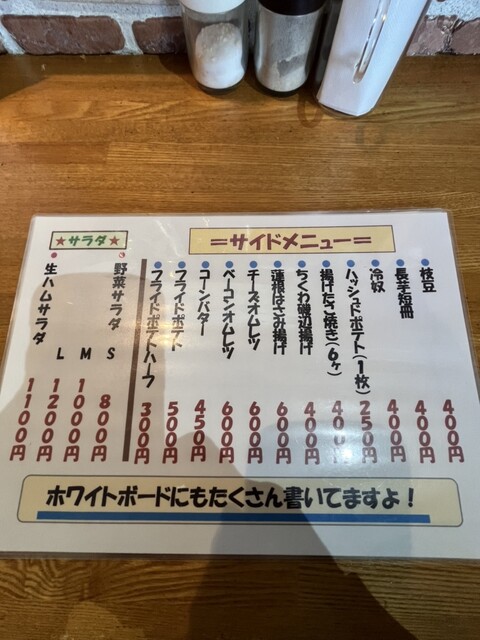 =サイドメニュー=
枝豆 400円
長芋短冊 400円
冷奴 400円
ハッシュドポテト(1枚) 250円
揚げたこ焼き(6ヶ) 400円
ちくわ磯辺揚げ 400円
蓮根はさみ揚げ 600円
チーズオムレツ 600円
ベーコンオムレツ 600円
コーンバター 450円
フライドポテト 500円
フライドポテトハーフ 300円
★サラダ★
野菜サラダ S 800円
M 1000円
L 1200円
生ハムサラダ 1100円
ホワイトボードにもたくさん書いてますよ！